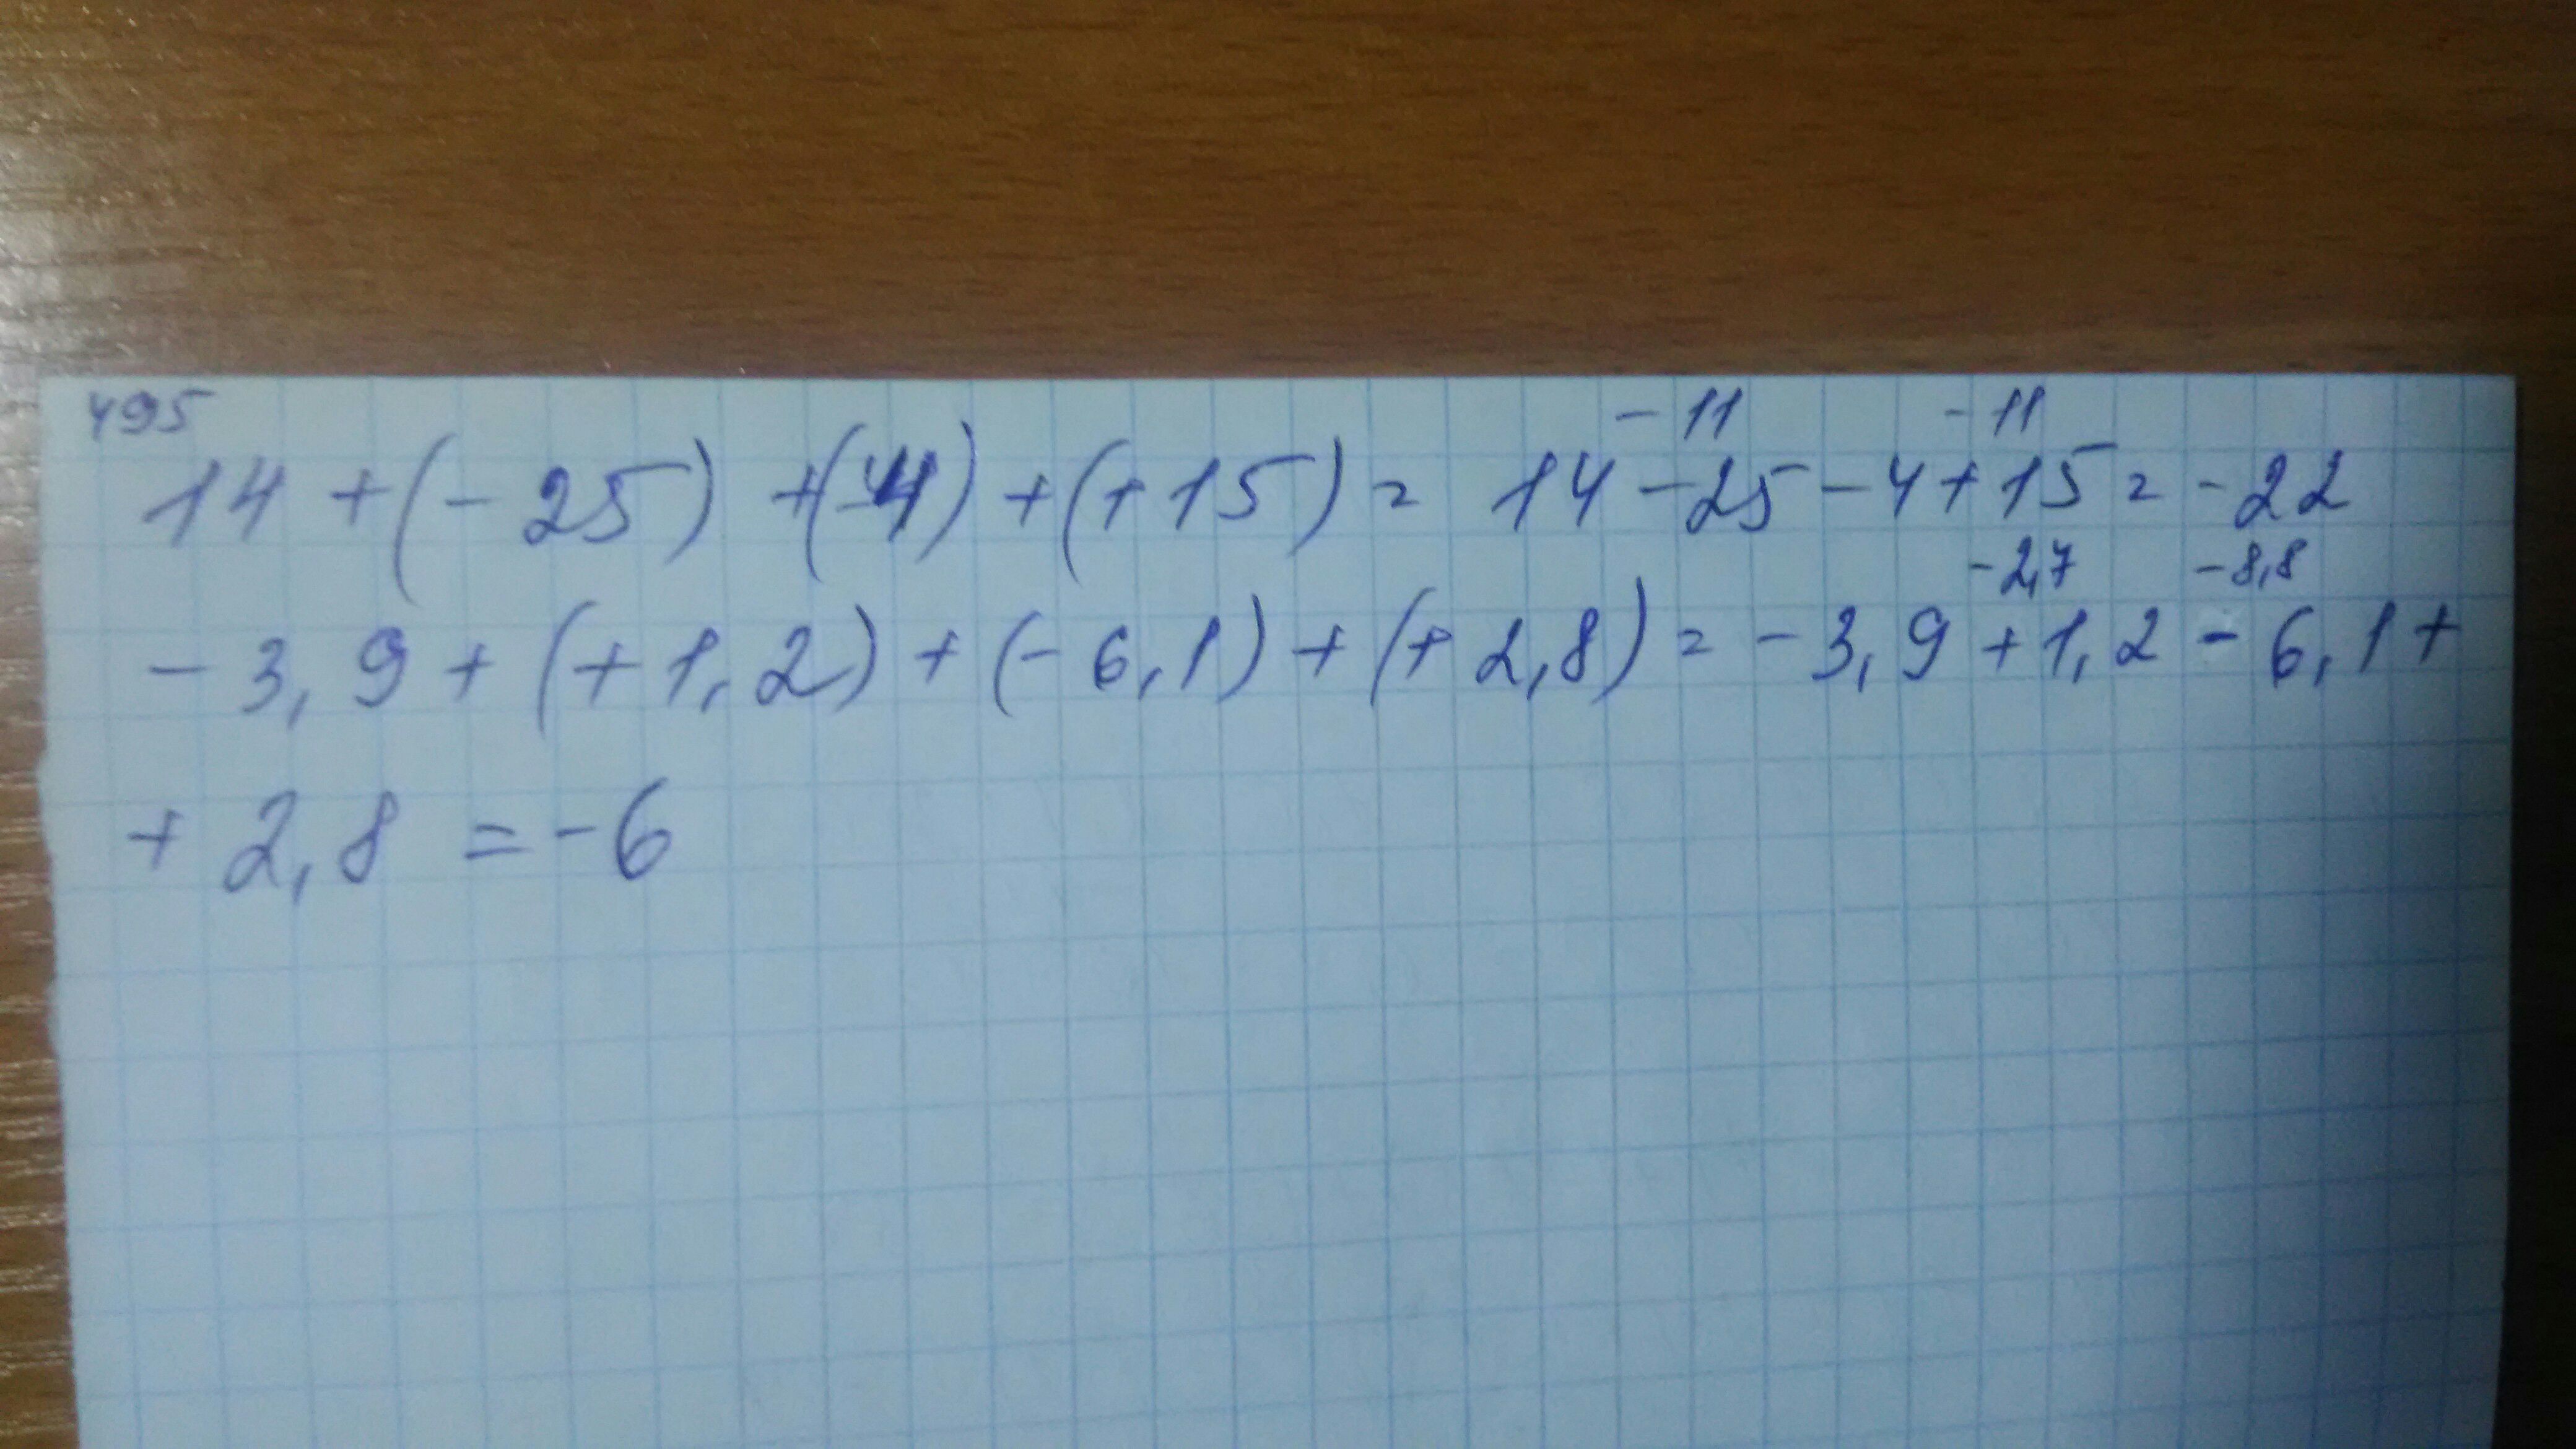 495
-11 -11
14 + (-25) + (-4) + (+15) = 14 - 25 - 4 + 15 = -22
-2,7 -8,8
- 3,9 + (+1,2) + (-6,1) + (+2,8) = -3,9 + 1,2 - 6,1 +
+ 2,8 = -6